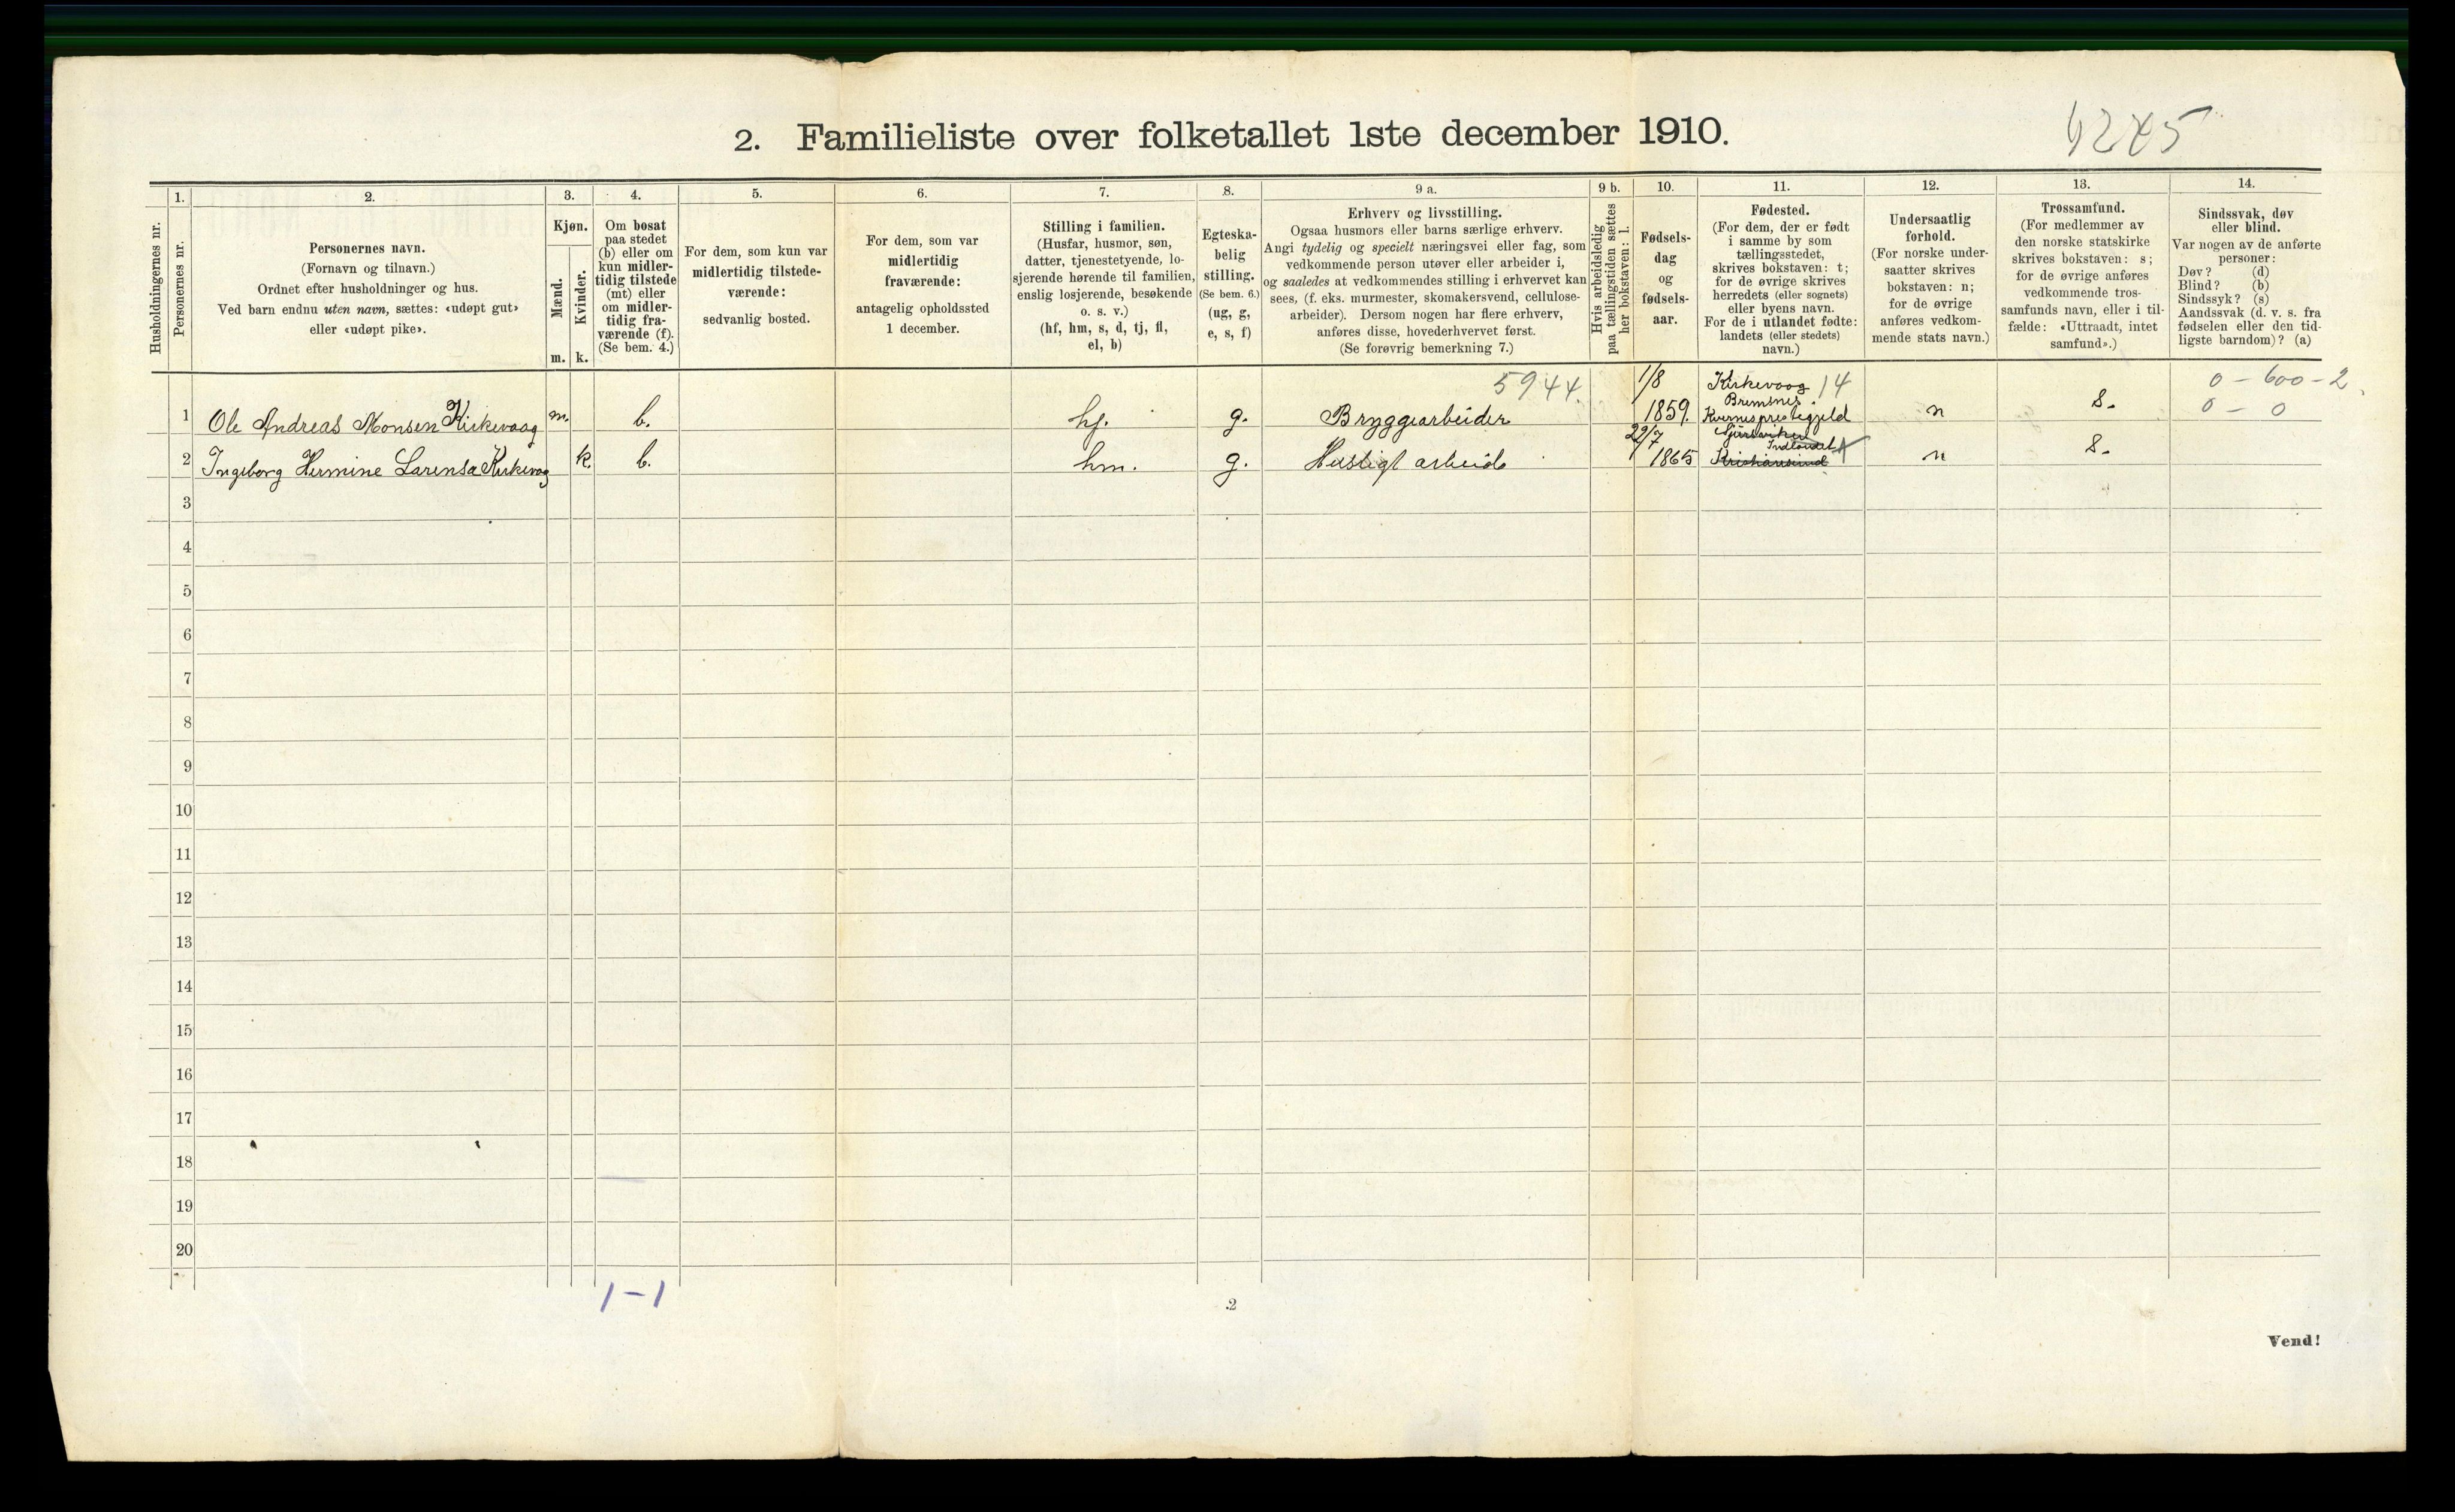 2. Familieliste over folketallet 1ste december 1910.
Husholdningernes nr.
1.
Personernes nr.
2.
Personernes navn.
(Fornavn og tilnavn.)
Ordnet efter husholdninger og hus.
Ved barn endnu uten navn, sættes: «udøpt gut»
eller «udøpt pike».
3.
Kjøn.
Mænd.
m.
Kvinder.
k.
4.
Om bosat
paa stedet
(b) eller om
kun midler-
tidig tilstede
(mt) eller
om midler-
tidig fra-
værende (f).
(Se bem. 4.)
5.
For dem, som kun var
midlertidig tilstede-
værende:
sedvanlig bosted.
6.
For dem, som var
midlertidig
fraværende:
antagelig opholdssted
1 december.
7.
Stilling i familien.
(Husfar, husmor, søn,
datter, tjenestetyende, lo-
sjerende hørende til familien,
enslig losjerende, besøkende
o. s. v.)
(hf, hm, s, d, tj, fl,
el, b)
8.
Egteska-
belig
stilling.
(Se bem. 6.)
(ug, g,
e, s, f)
9 a.
Erhverv og livsstilling.
Ogsaa husmors eller barns særlige erhverv.
Angi tydelig og specielt næringsvei eller fag, som
vedkommende person utøver eller arbeider i,
og saaledes at vedkommendes stilling i erhvervet kan
sees, (f. eks. murmester, skomakersvend, cellulose-
arbeider). Dersom nogen har flere erhverv,
anføres disse, hovederhvervet først.
(Se forøvrig bemerkning 7.)
9 b.
Hvis arbeidsledig
paa tællingstiden sættes
her bokstaven: l.
10.
Fødsels-
dag
og
fødsels-
aar.
11.
Fødested.
(For dem, der er født
i samme by som
tællingsstedet,
skrives bokstaven: t;
for de øvrige skrives
herredets (eller sognets)
eller byens navn.
For de i utlandet fødte:
landets (eller stedets)
navn.)
12.
Undersaatlig
forhold.
(For norske under-
saatter skrives
bokstaven: n;
for de øvrige
anføres vedkom-
mende stats navn.)
13.
Trossamfund.
(For medlemmer av
den norske statskirke
skrives bokstaven: s;
for de øvrige anføres
vedkommende tros-
samfunds navn, eller i til-
fælde: «Uttraadt, intet
samfund».)
14.
Sindssvak, døv
eller blind.
Var nogen av de anførte
personer:
Døv? (d)
Blind? (b)
Sindssyk? (s)
Aandssvak (d. v. s. fra
fødselen eller den tid-
ligste barndom)? (a)
5944. 1/8 Kirkevaag 14 0 - 600 - 2
Bremsnes.
1 Ole Andreas Monsen Kirkevaag m. b. hf. g. Bryggearbeider 1859. Kvernes prestegjeld n s. 0 - 0
29/7
Indlandet
2 Ingeborg Hermine Larensa Kirkevaag k. b. hm. g. Husligt arbeide 1865 Kristiansund n s.
3
4
5
6
7
8
9
10
11
12
13
14
15
16
17
18
19
20
1-1
2
Vend!